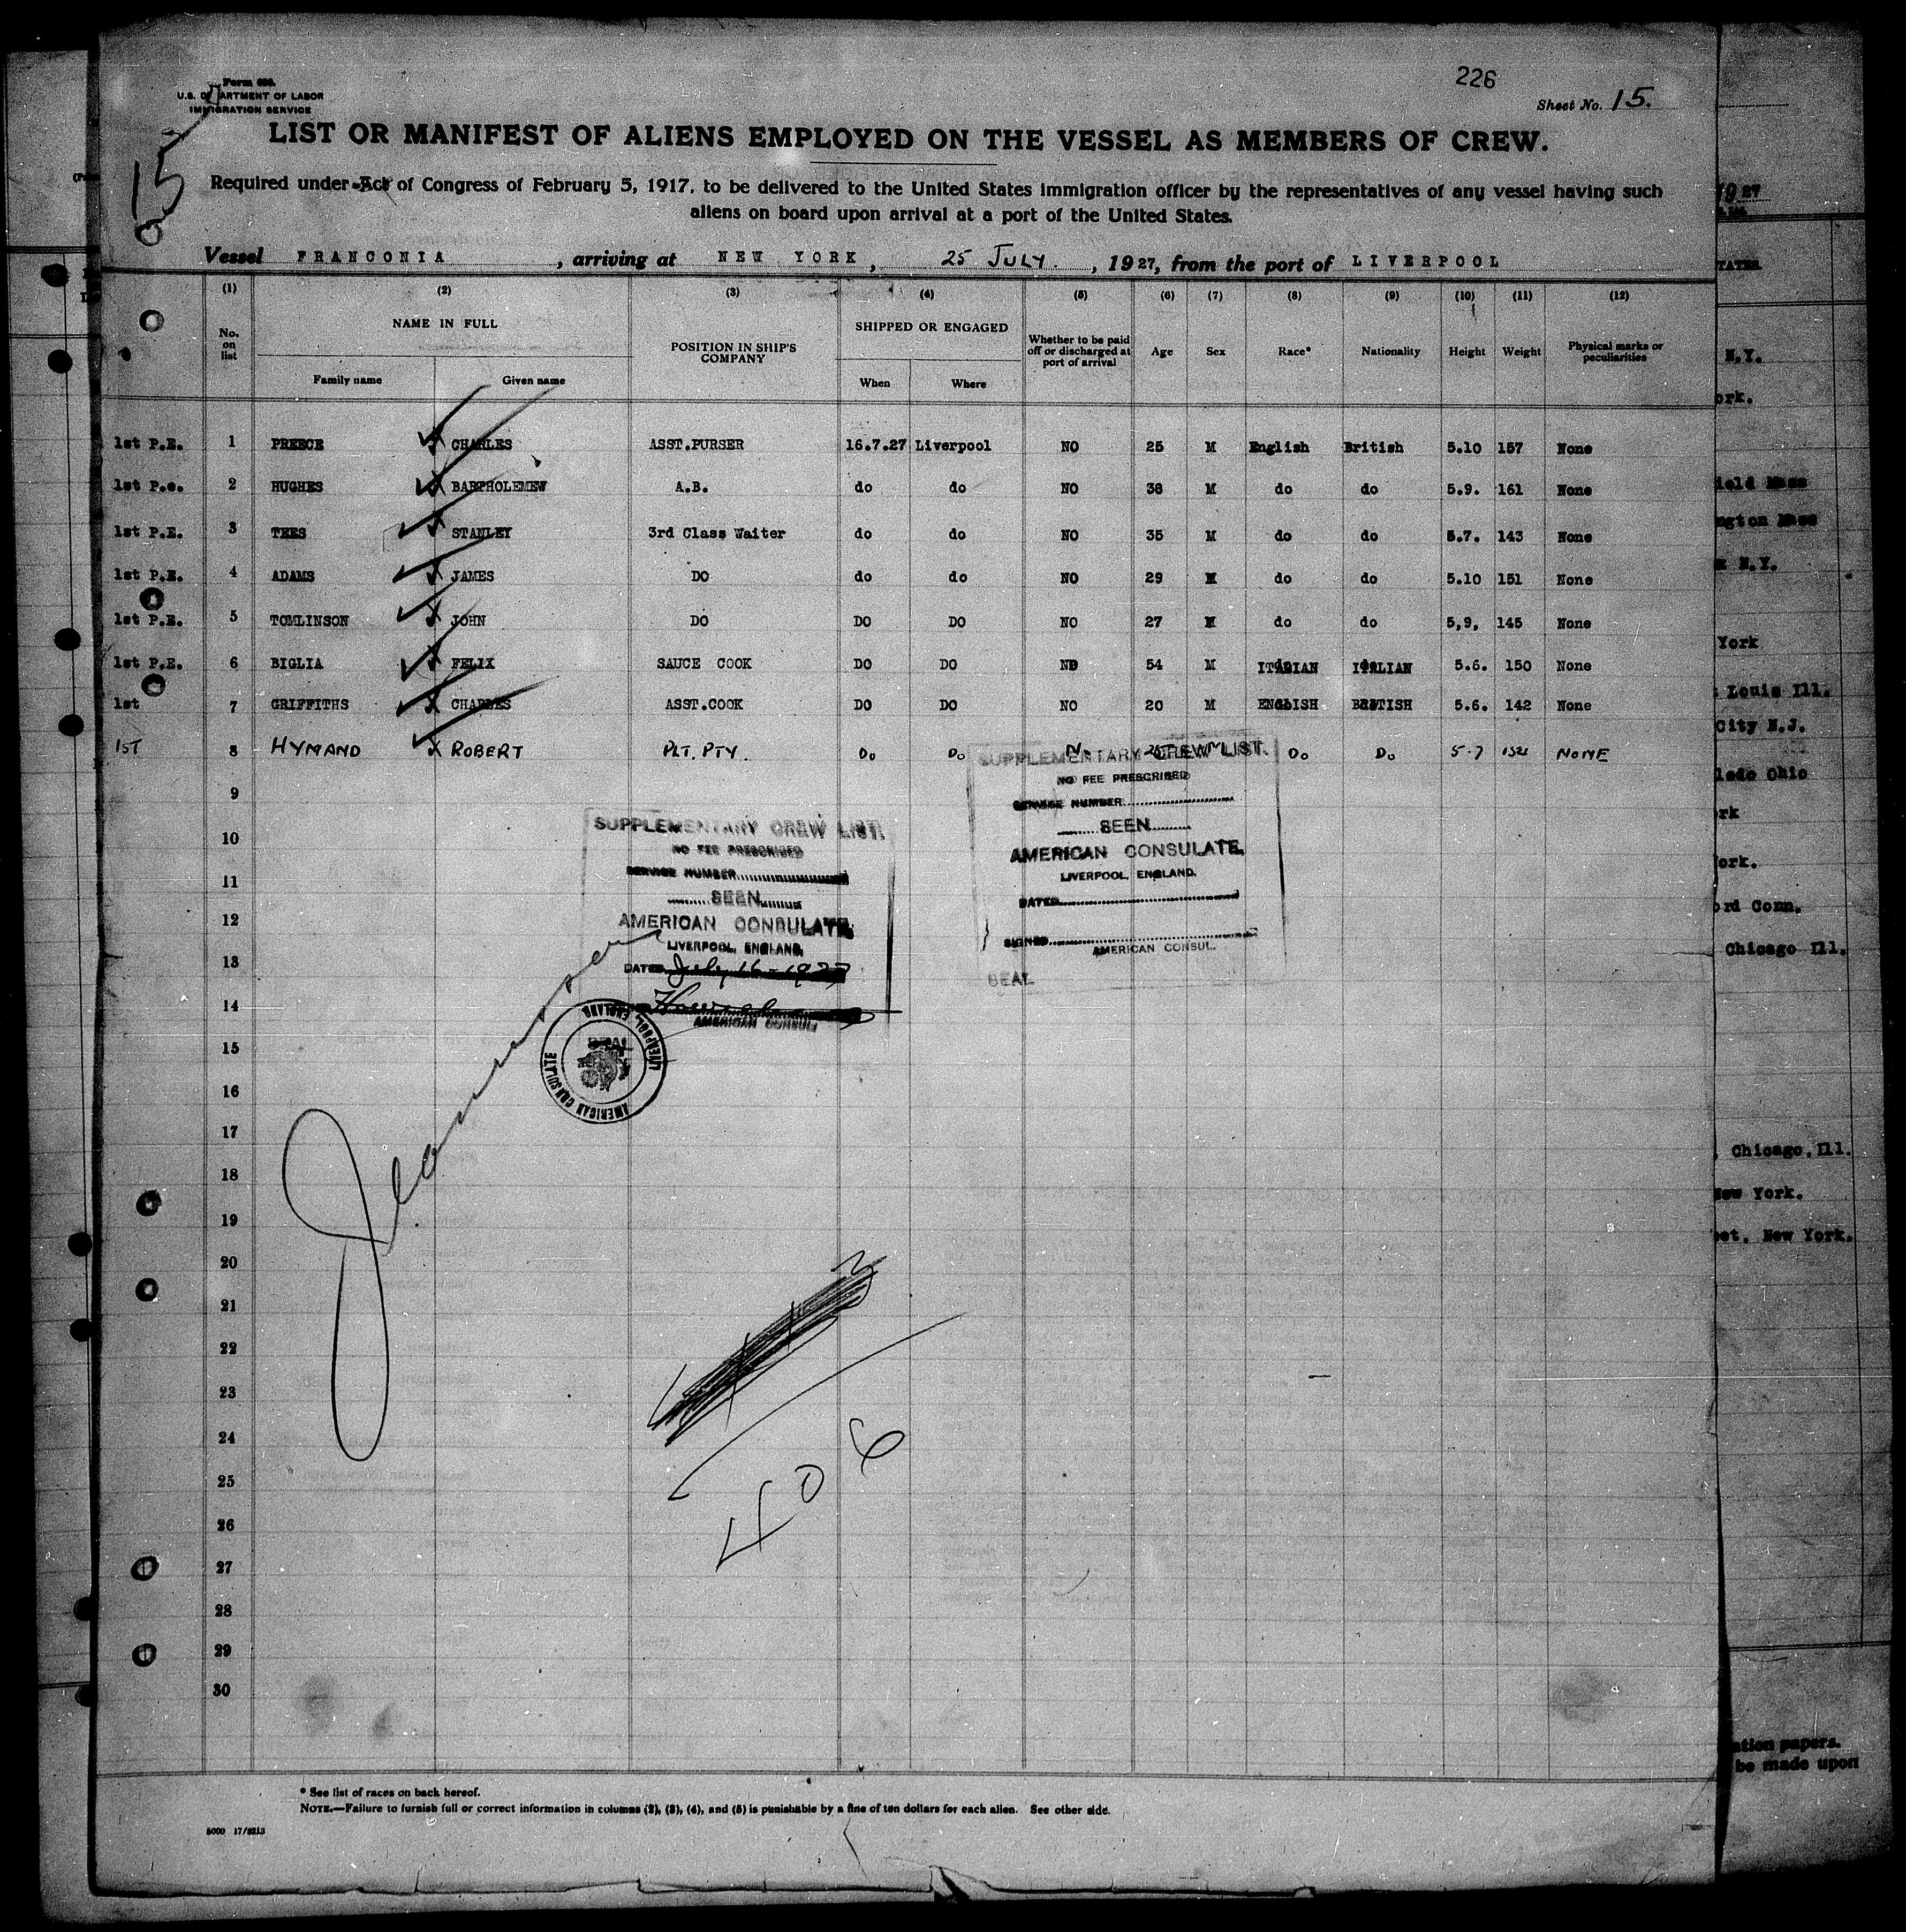 226
Form 680.
U.S. DEPARTMENT OF LABOR
IMMIGRATION SERVICE
Sheet No. 15.
15
LIST OR MANIFEST OF ALIENS EMPLOYED ON THE VESSEL AS MEMBERS OF CREW.
Required under Act of Congress of February 5, 1917, to be delivered to the United States immigration officer by the representatives of any vessel having such
aliens on board upon arrival at a port of the United States.
Vessel FRANCONIA, arriving at NEW YORK, 25 JULY, 1927, from the port of LIVERPOOL
(1) (2) (3) (4) (5) (6) (7) (8) (9) (10) (11) (12)
No. on list NAME IN FULL POSITION IN SHIP'S COMPANY SHIPPED OR ENGAGED Whether to be paid off or discharged at port of arrival Age Sex Race* Nationality Height Weight Physical marks or peculiarities
Family name Given name When Where
1st P.E. 1 PREECE CHARLES ASST.PURSER 16.7.27 Liverpool NO 25 M English British 5.10 157 None
1st P.e. 2 HUGHES BARTHOLEMEW A.B. do do NO 38 M do do 5.9. 161 None
1st P.E. 3 TEES STANLEY 3rd Class Waiter do do NO 35 M do do 5.7. 143 None
1st P.E. 4 ADAMS JAMES DO do do NO 29 M do do 5.10 151 None
1st P.E. 5 TOMLINSON JOHN DO DO DO NO 27 M do do 5,9, 145 None
1st P.E. 6 BIGLIA FELIX SAUCE COOK DO DO NO 54 M ITALIAN ITALIAN 5.6. 150 None
1st 7 GRIFFITHS CHARLES ASST.COOK DO DO NO 20 M ENGLISH BRITISH 5.6. 142 None
1ST 8 HYMAND ROBERT PLT. PTY. Do Do No M Do Do 5-7 NONE
9
10
11
12
13
14
15
16
17
18
19
20
21
22
23
24
25
26
27
28
29
30
SUPPLEMENTARY CREW LIST.
NO FEE PRESCRIBED
SERVICE NUMBER
SEEN
AMERICAN CONSULATE,
LIVERPOOL, ENGLAND.
DATED July 16-1927
AMERICAN CONSUL
AMERICAN CONSULATE
LIVERPOOL, ENGLAND
SUPPLEMENTARY CREW LIST.
NO FEE PRESCRIBED
SERVICE NUMBER
SEEN
AMERICAN CONSULATE,
LIVERPOOL, ENGLAND.
DATED
SIGNED
AMERICAN CONSUL.
SEAL
406
* See list of races on back hereof.
NOTE.—Failure to furnish full or correct information in columns (2), (3), (4), and (5) is punishable by a fine of ten dollars for each alien. See other side.
5000 17/8213
1927
TATES
N.Y.
ork.
ield Mass
ngton Mass
N.Y.
York
Louis Ill.
City N.J.
ledo Ohio
rk
ork.
ord Conn.
Chicago Ill.
Chicago, Ill.
New York.
eet, New York.
ation papers.
be made upon